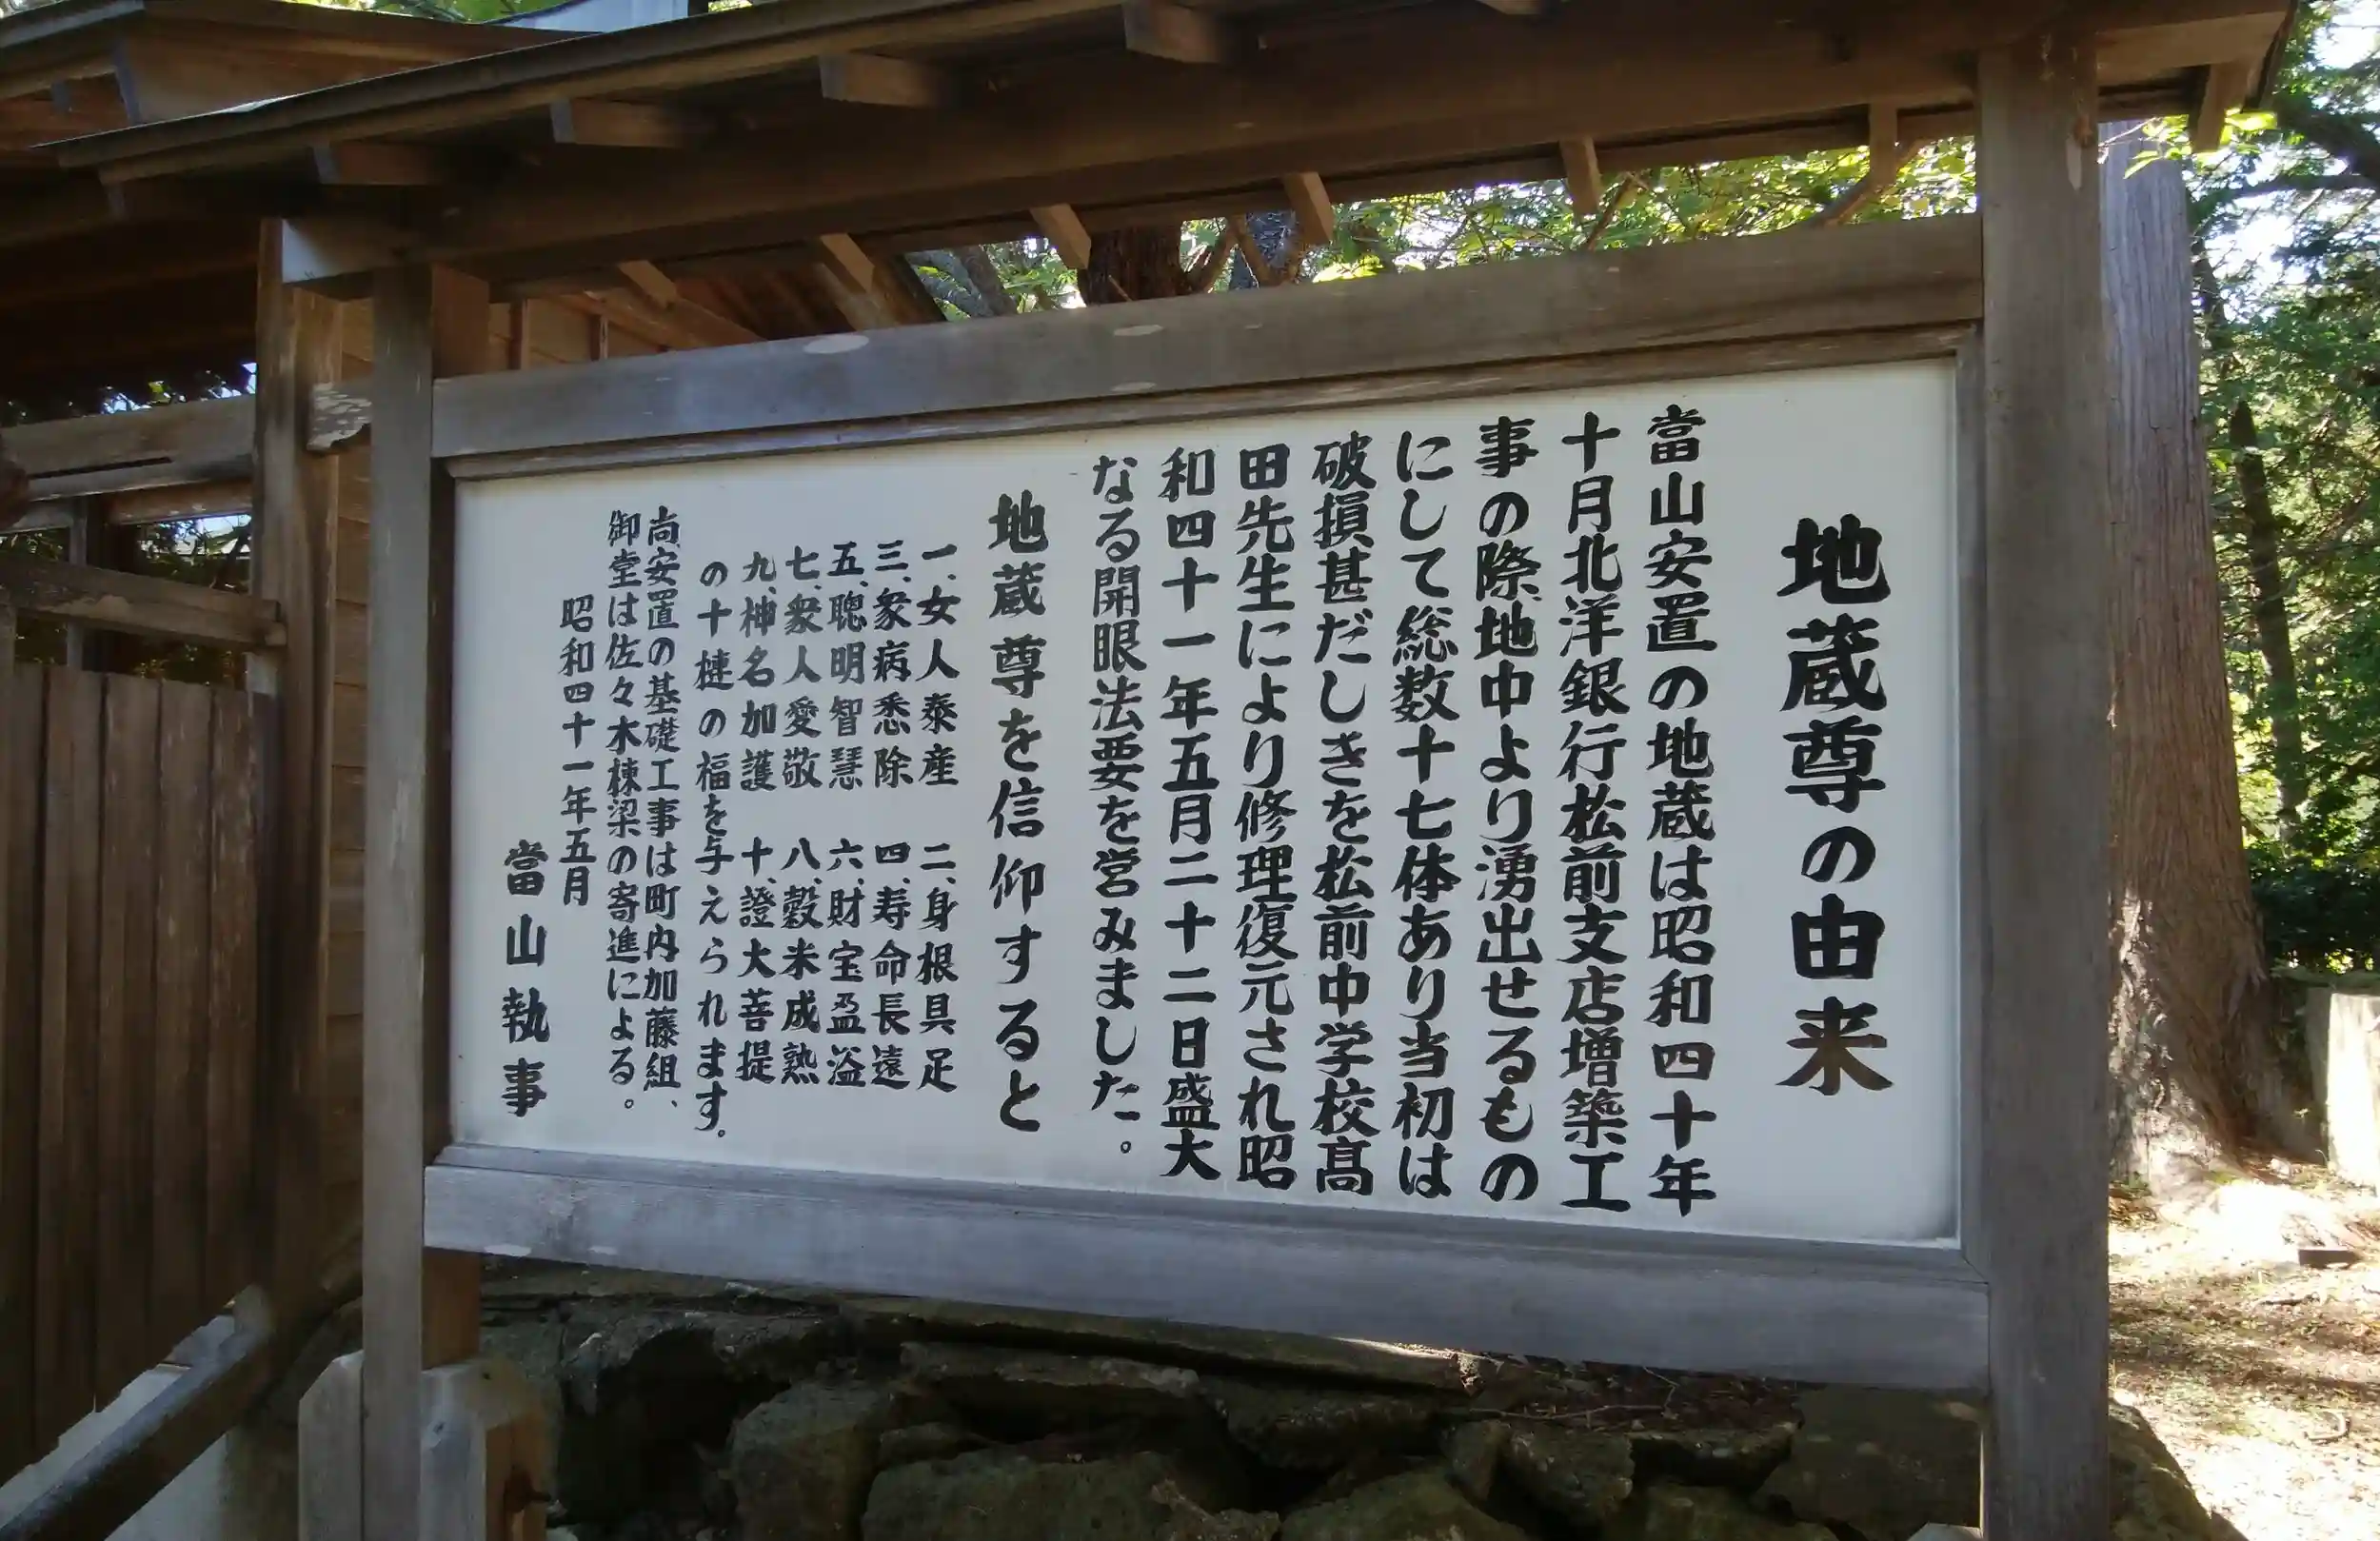 地蔵尊の由来
當山安置の地蔵は昭和四十年
十月北洋銀行松前支店増築工
事の際地中より湧出せるもの
にして総数十七体あり当初は
破損甚だしきを松前中学校高
田先生により修理復元され昭
和四十一年五月二十二日盛大
なる開眼法要を営みました。
地蔵尊を信仰すると
一、女人泰産 二、身根具足
三、衆病悉除 四、寿命長遠
五、聰明智慧 六、財宝盈溢
七、衆人愛敬 八、穀米成熟
九、神名加護 十、證大菩提
の十種の福を与えられます。
尚安置の基礎工事は町内加藤組、
御堂は佐々木棟梁の寄進による。
昭和四十一年五月
當山執事